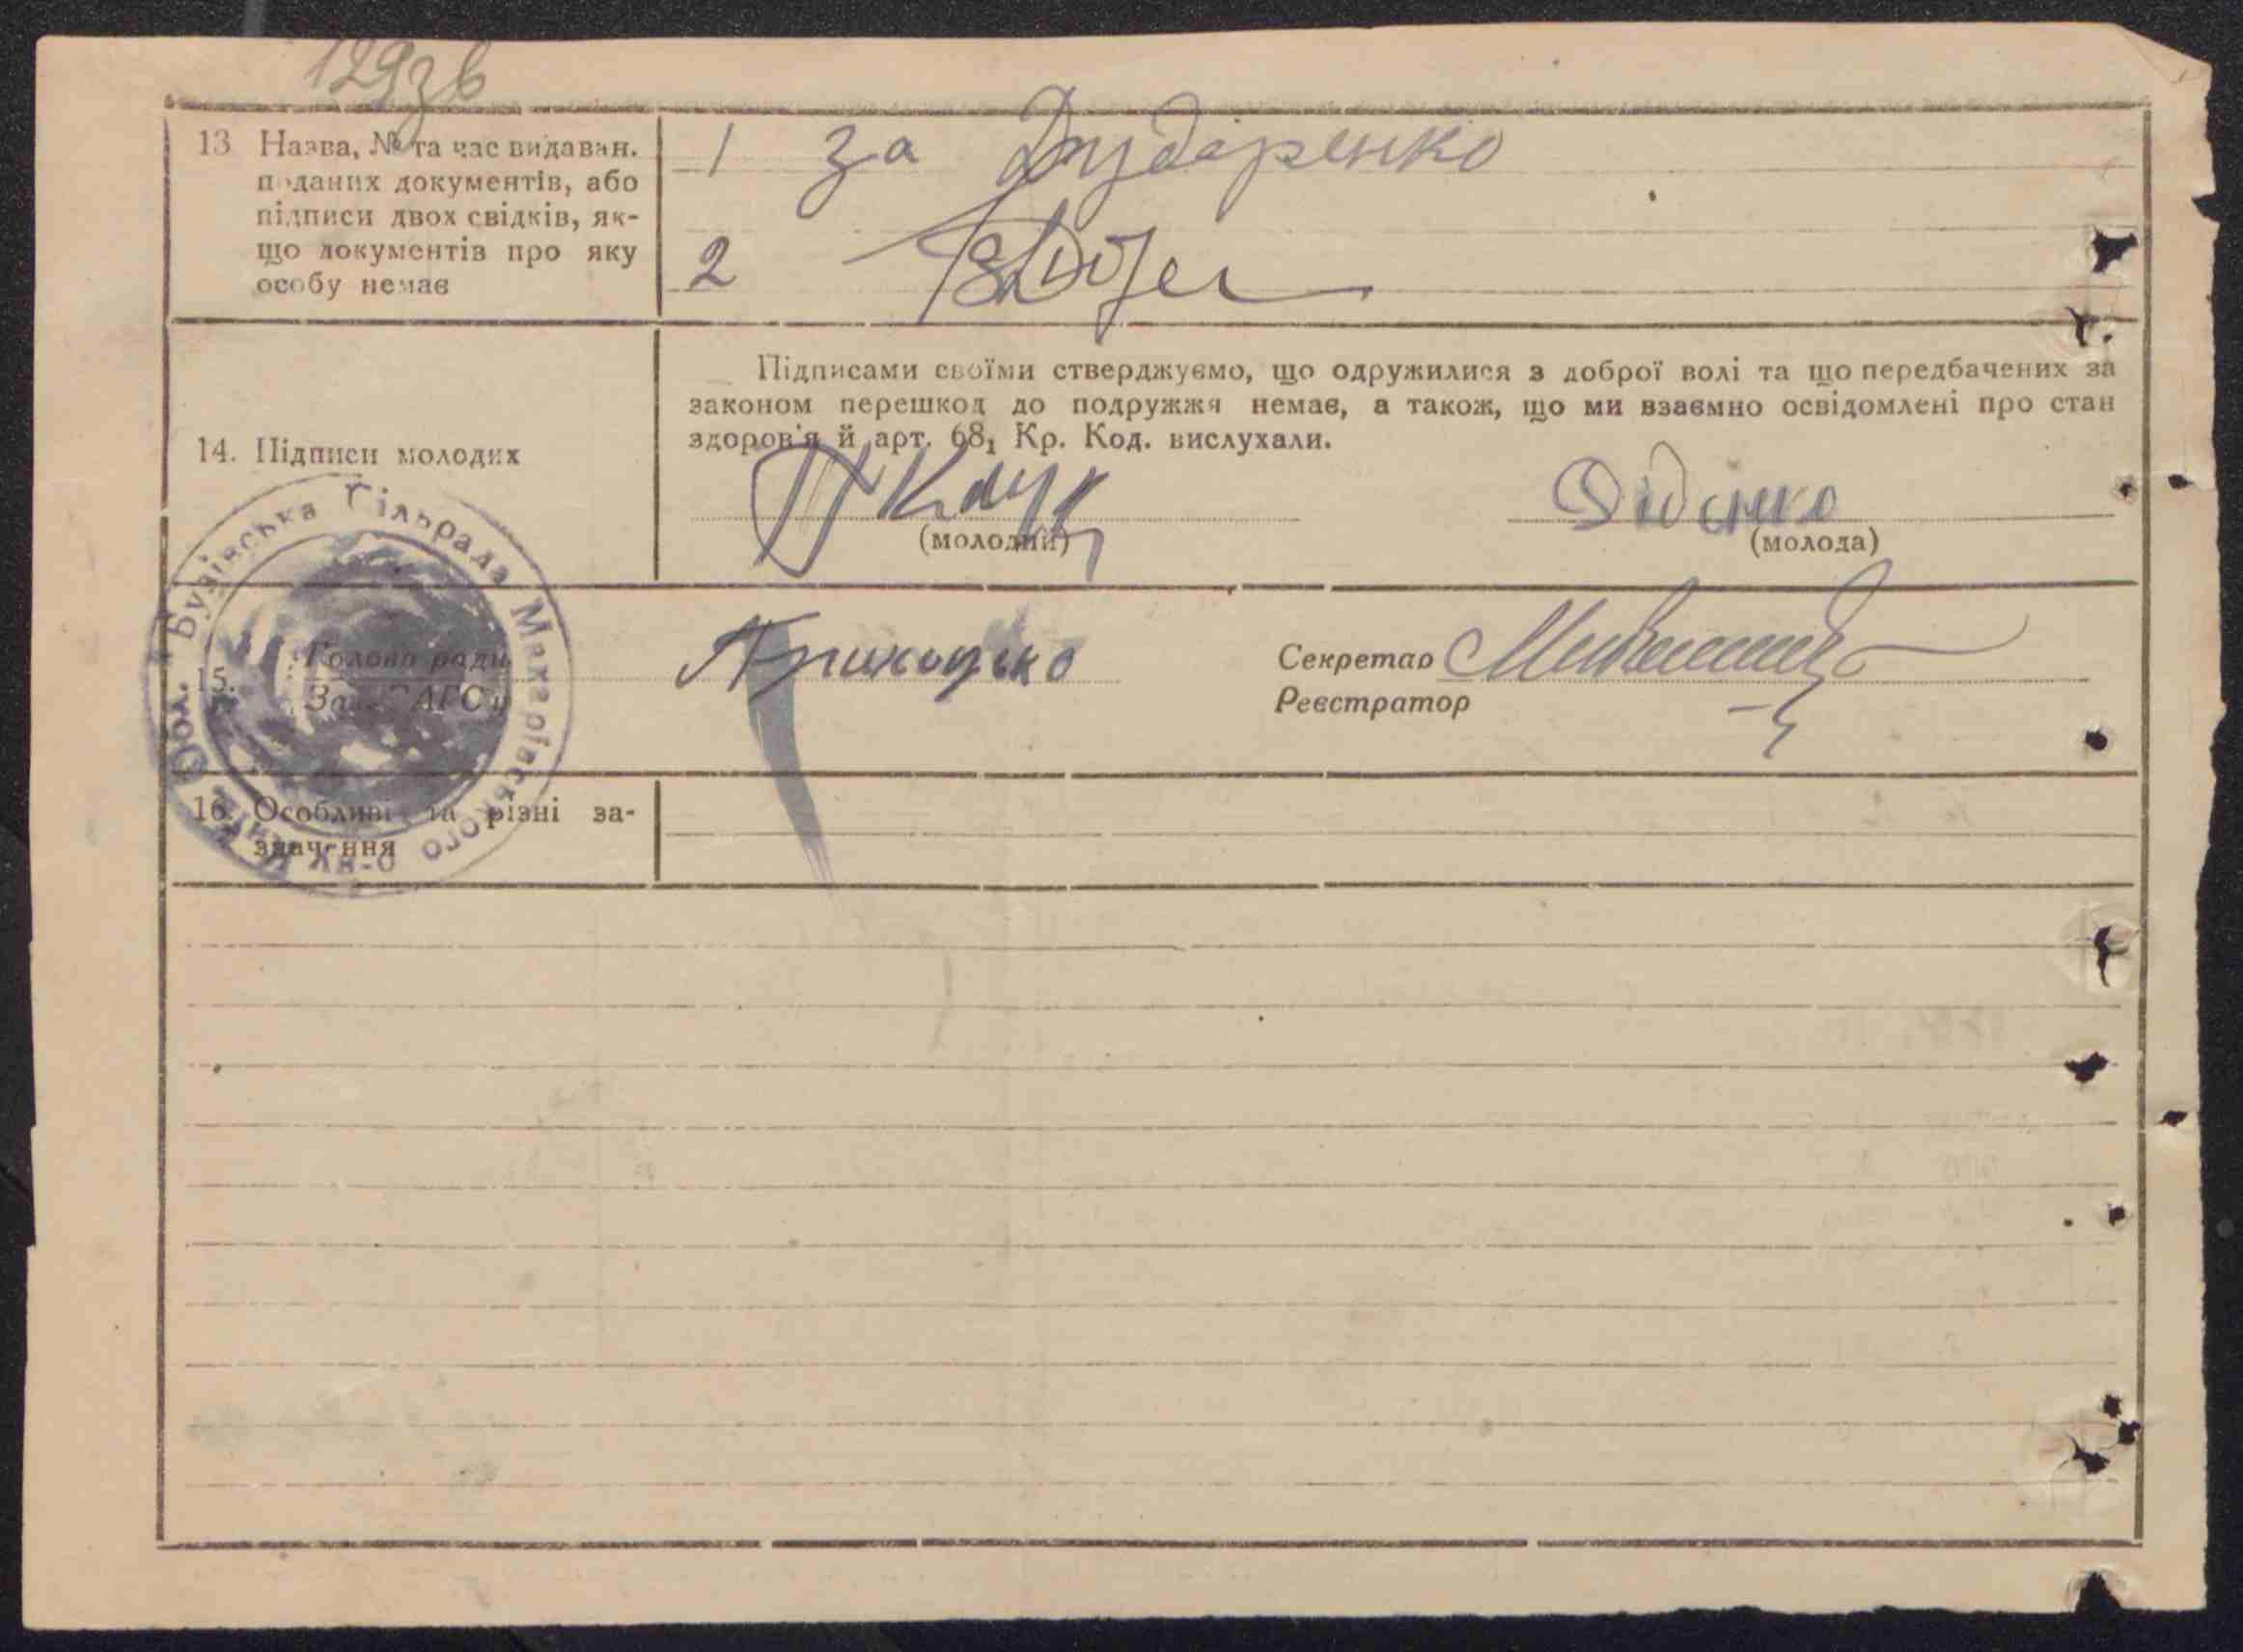 129зв
13 Назва, № та час видаван.
поданих документів, або
підписи двох свідків, як-
що документів про яку
особу немає
1 за Дударенко
2
Підписами своїми стверджуємо, що одружилися з доброї волі та що передбачених за
законом перешкод до подружжя немає, а також, що ми взаємно освідомлені про стан
здоров'я й арт. 68₁ Кр. Код. вислухали.
14. Підписи молодих
Діденко
(молодий) (молода)
Бузівська Сільрада Макарівського р-ну Київ. Обл.
15. Голова ради Приходько Секретар
Зав. ЗАГС'у Реєстратор
16. Особливі та різні за-
значення